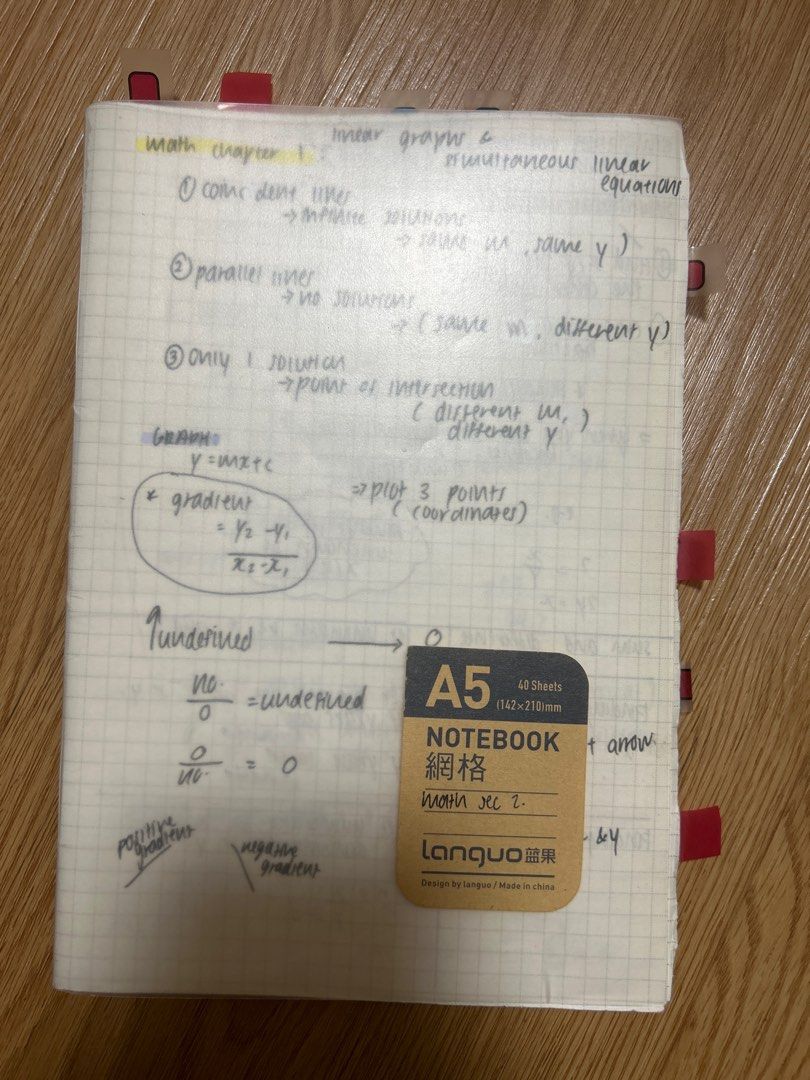 linear graphs &
math chapter 1 :
simultaneous linear
equations
① coincident lines
→ infinite solutions
→ same m, same y )
② parallel lines
→ no solutions
→ ( same m, different y)
③ only 1 solution
→ point of intersection
( different m, )
different y
GRAPH:
y = mx+c
* gradient
= y₂ - y₁
x₂ - x₁
⇒ plot 3 points
( coordinates)
↑ undefined → 0
no.
0
= undefined
0
no.
= 0
positive
gradient
negative
gradient
A5
40 Sheets
(142×210)mm
NOTEBOOK
網格
math sec 2.
languo 蓝果
Design by languo / Made in china
+ arrow
- & y